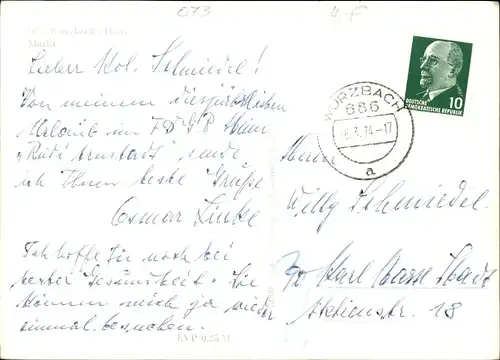 073
4-F
Wurzbach (Thür.)
Markt
Lieber Kol. Schmiedel!
Von meinem diesjährlichen
Urlaub im FDGB Heim
"Rudi Arnstadt" sende
ich Ihnen beste Grüße
Osmar Linke
Ich hoffe Sie noch bei
bester Gesundheit. Sie
können mich ja wieder
einmal besuchen.
EVP 0,25 M
WURZBACH
686
.3.74-17
a
DEUTSCHE
DEMOKRATISCHE REPUBLIK
10
Herrn
Willy Schmiedel
Karl Marx Stadt
Aktienstr. 18